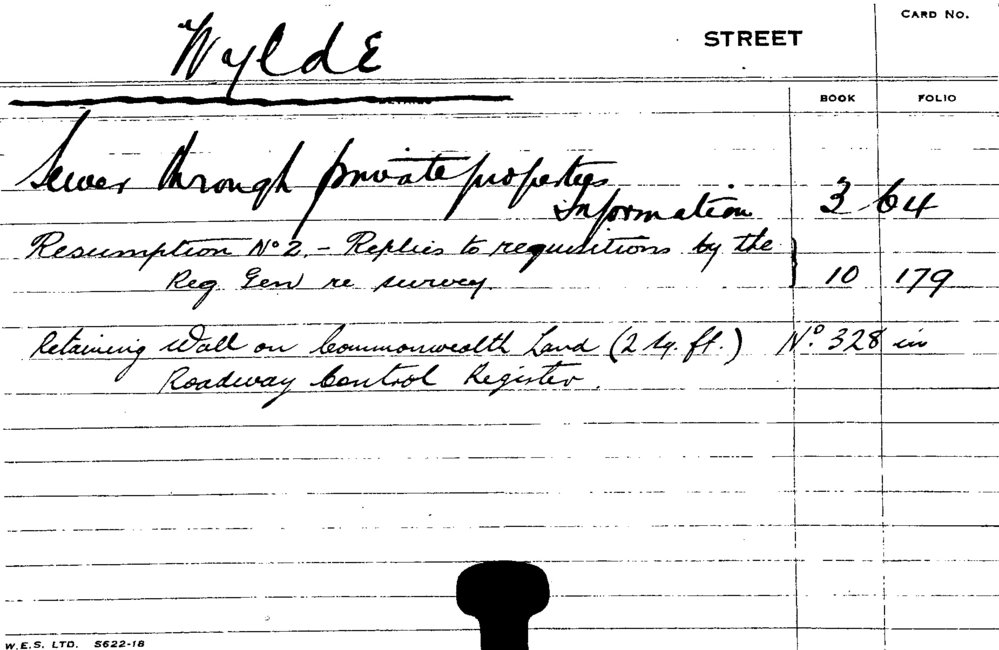 CARD NO.
Wylde STREET
BOOK FOLIO
Sewer through private properties
Information 3 64
Resumption No 2. - Replies to requisitions by the
Reg Gen re survey. 10 179
Retaining Wall on Commonwealth Land (2 sq. ft.) No. 328 in
Roadway Control Register.
W.E.S. LTD. S622-18